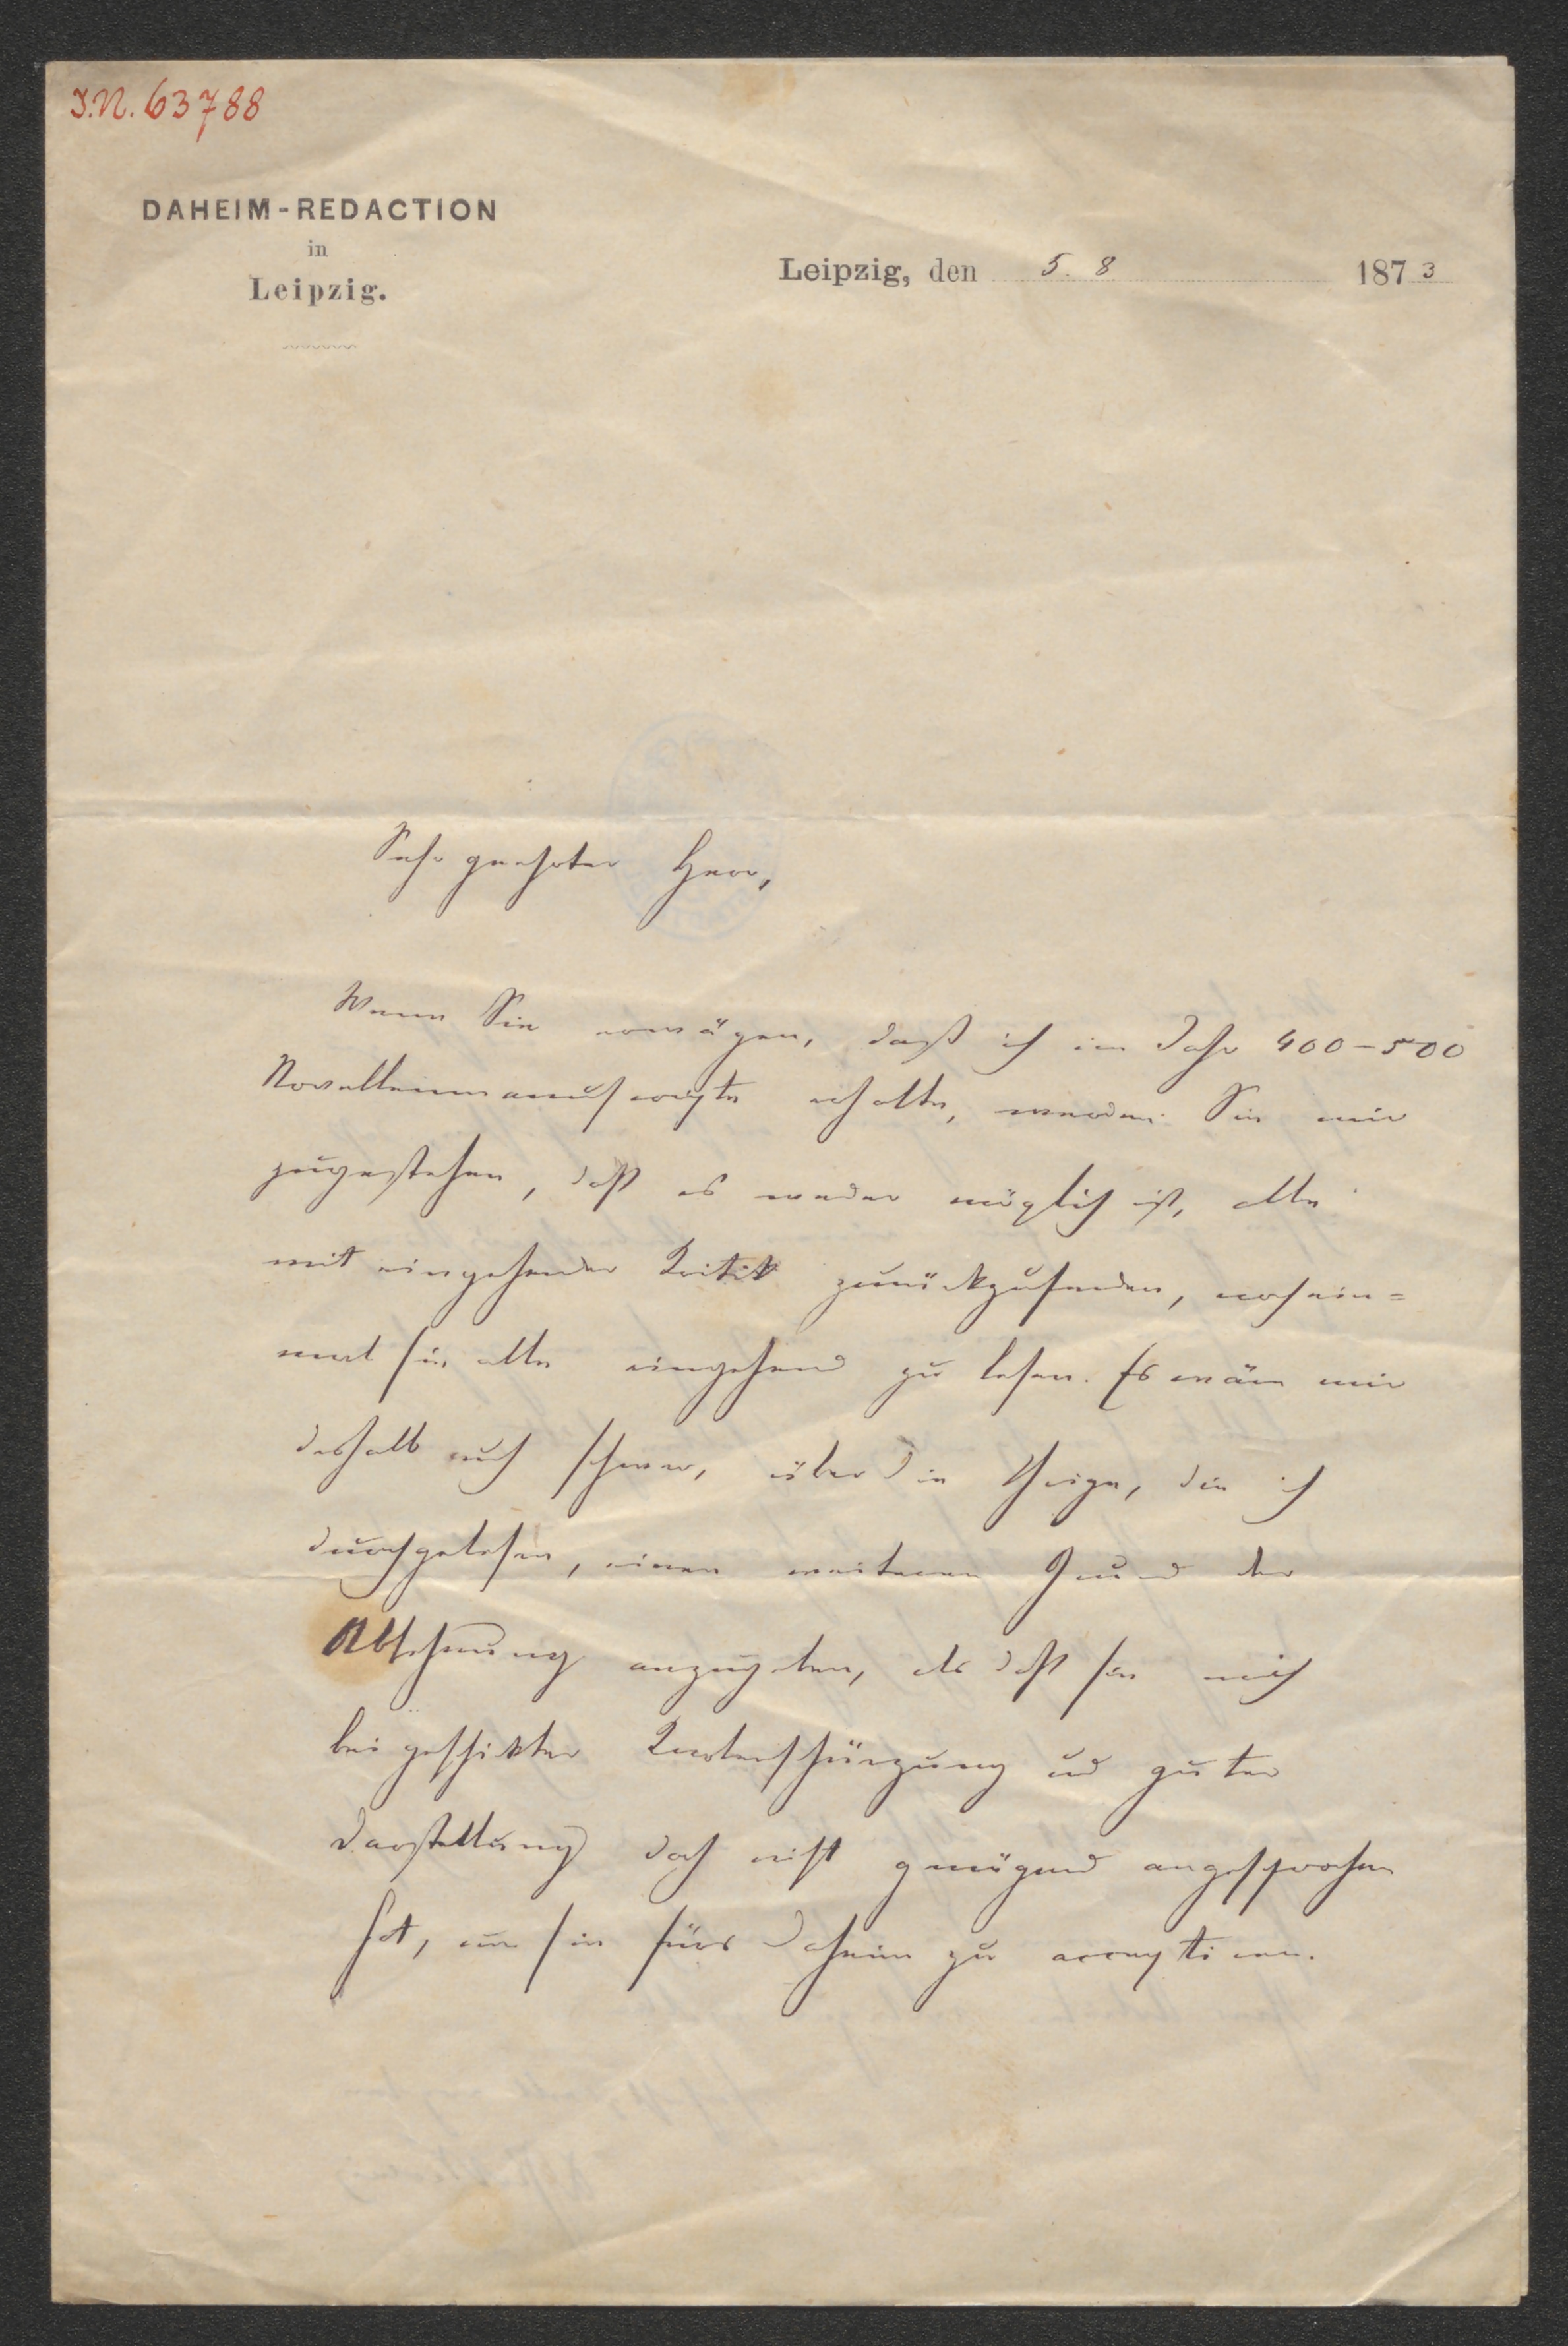 I.N. 63788
DAHEIM-REDACTION
in
Leipzig.
Leipzig, den 5. 8 1873
Sehr geehrter Herr,
Wenn Sie erwägen, daß ich im Jahr 400-500
Novellenmanuscripte erhalte, werden Sie mir
zugestehen, daß es weder möglich ist, alle
mit eingehender Kritik zurückzusenden, noch ein=
mal sie alle eingehend zu lesen. Es wäre mir
deshalb auch schwer, über die Ihrige, die ich
durchgelesen, einen weiteren Grund der
Ablehnung anzugeben, als daß sie mich
bei geschickter Knotenschürzung und guter
Darstellung doch nicht genügend angesprochen
hat, um sie fürs Daheim zu acceptiren.